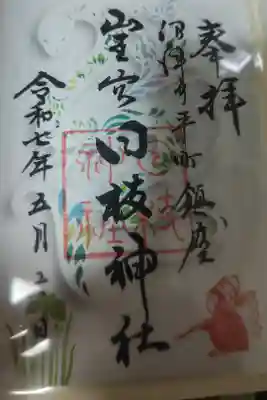 奉拝
沼津市平町鎮座
山王宮日枝神社
令和七年五月
日